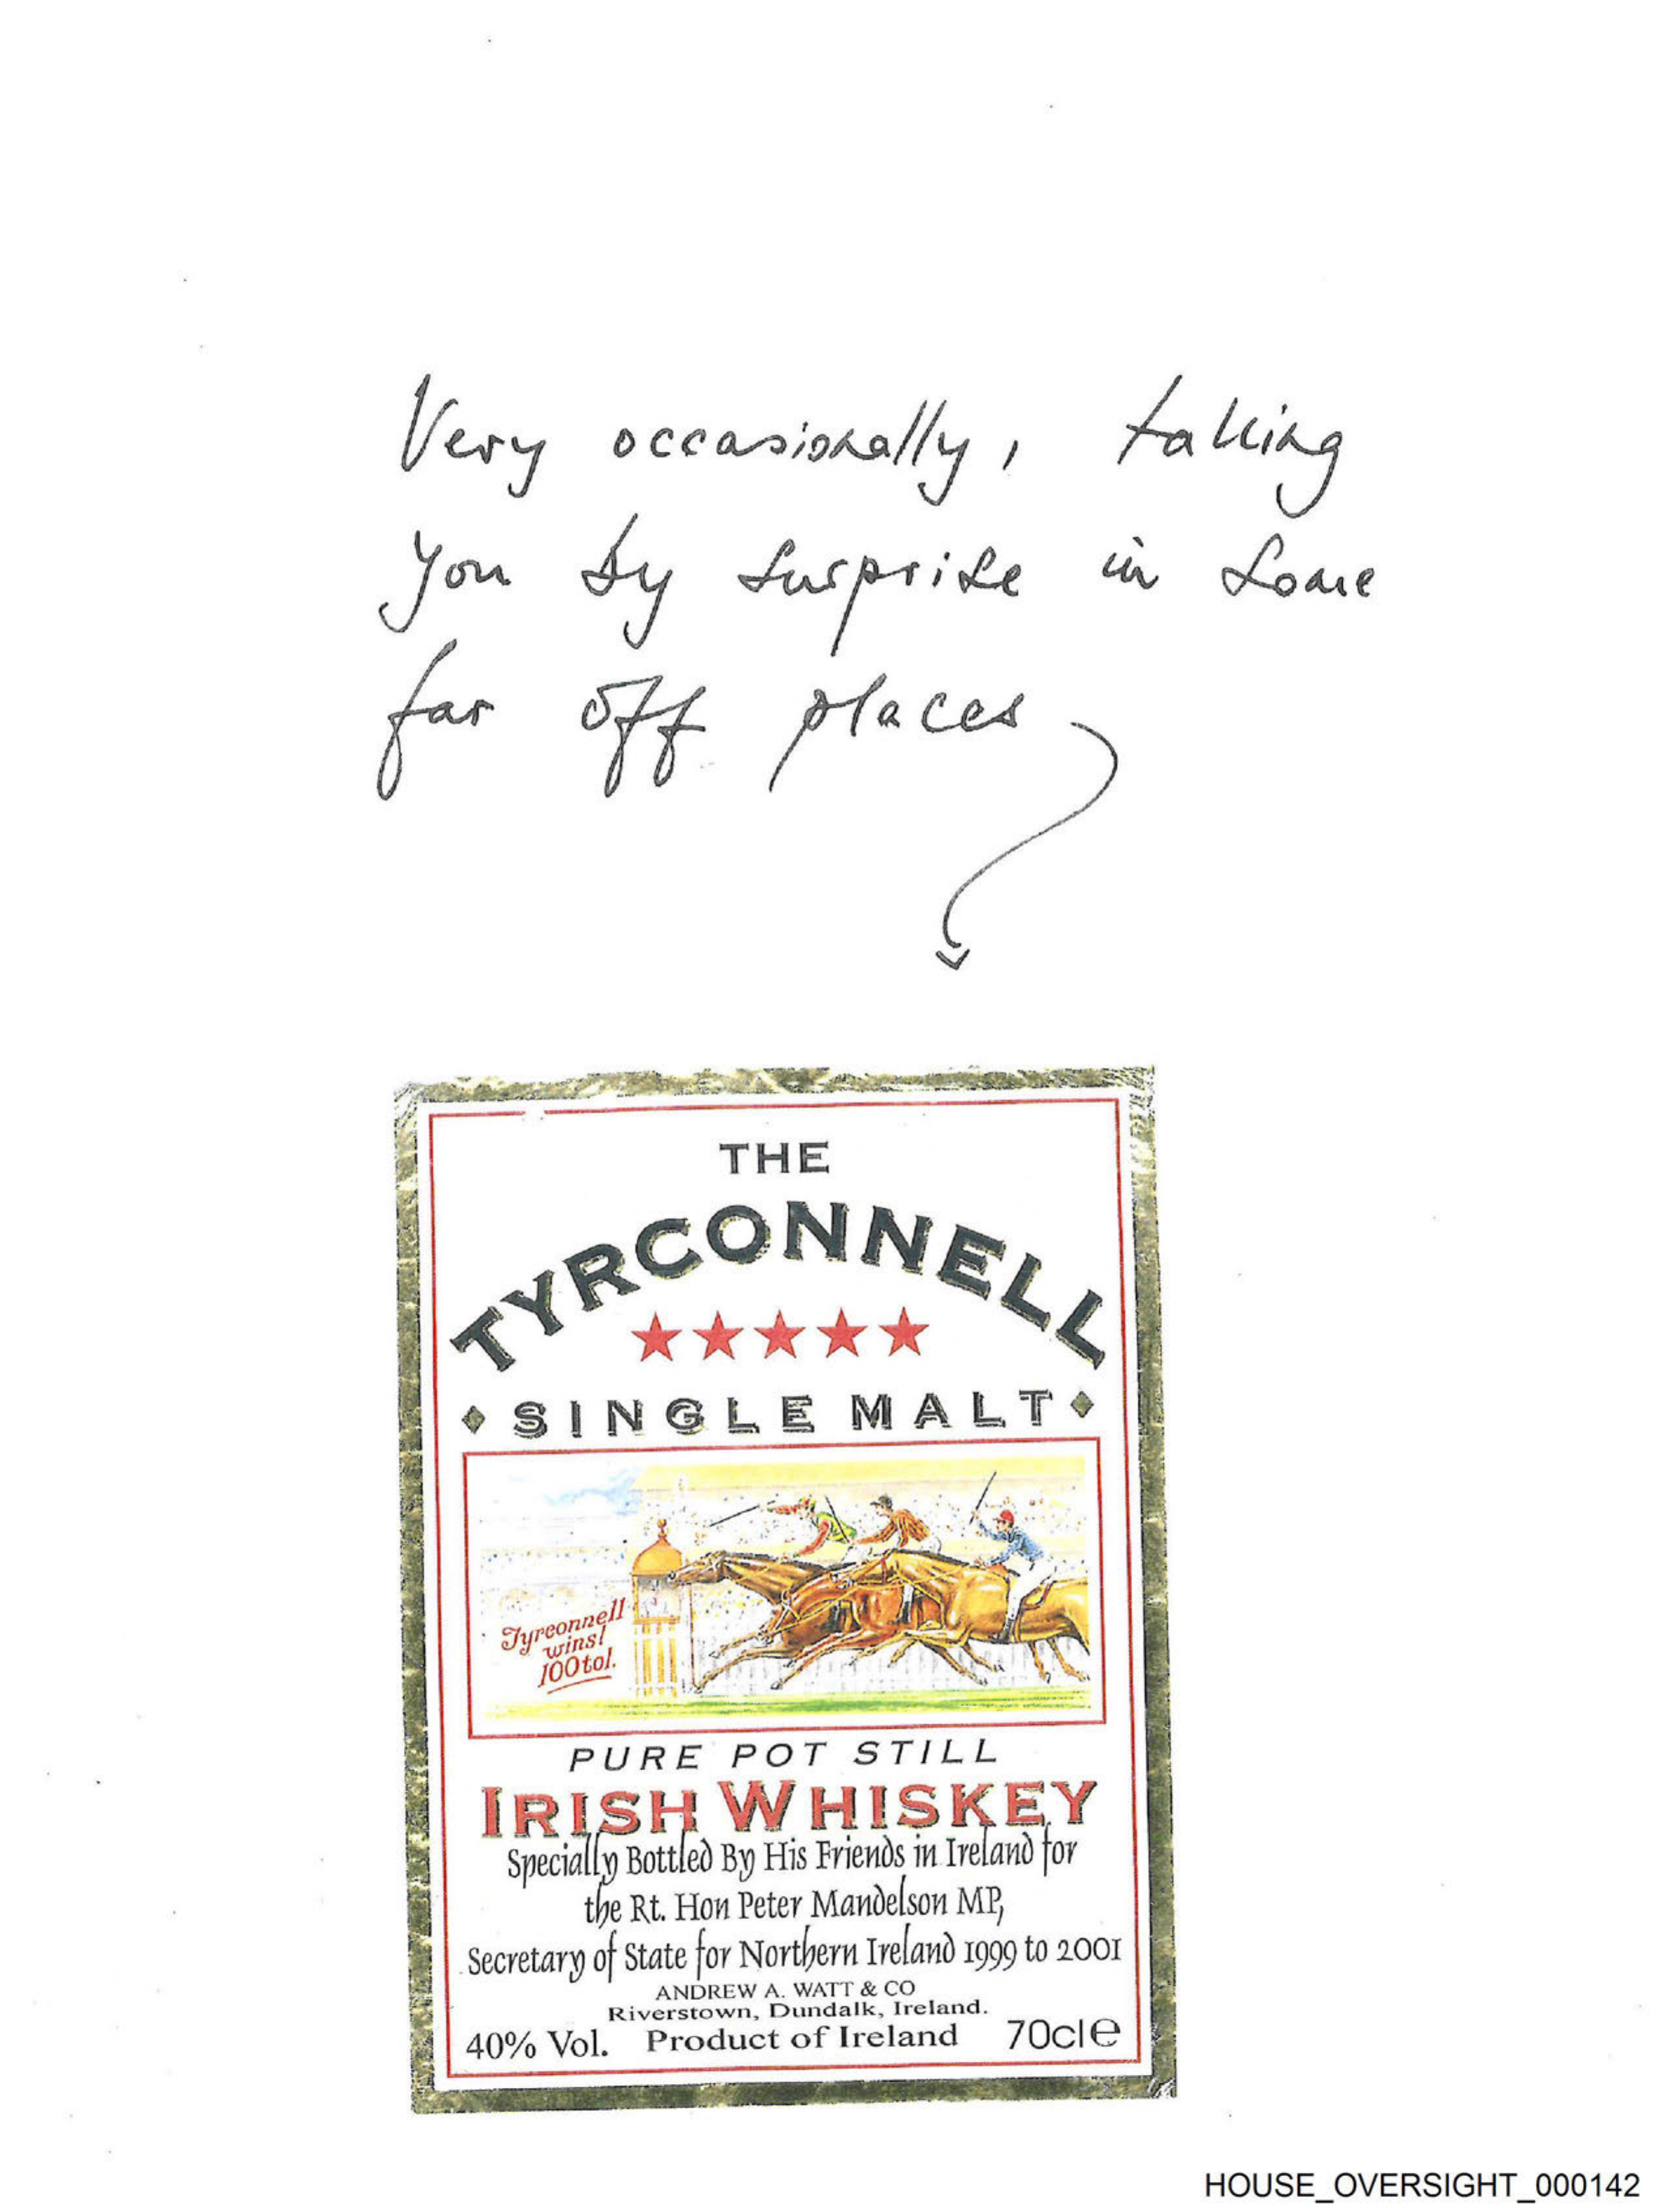 Very occasionally, taking
you by surprise in some
far off places
THE
TYRCONNELL
SINGLE MALT
Tyrconnell
wins!
100to1.
PURE POT STILL
IRISH WHISKEY
Specially Bottled By His Friends in Ireland for
the Rt. Hon Peter Mandelson MP,
Secretary of State for Northern Ireland 1999 to 2001
ANDREW A. WATT & CO
Riverstown, Dundalk, Ireland.
40% Vol. Product of Ireland 70cl e
HOUSE_OVERSIGHT_000142